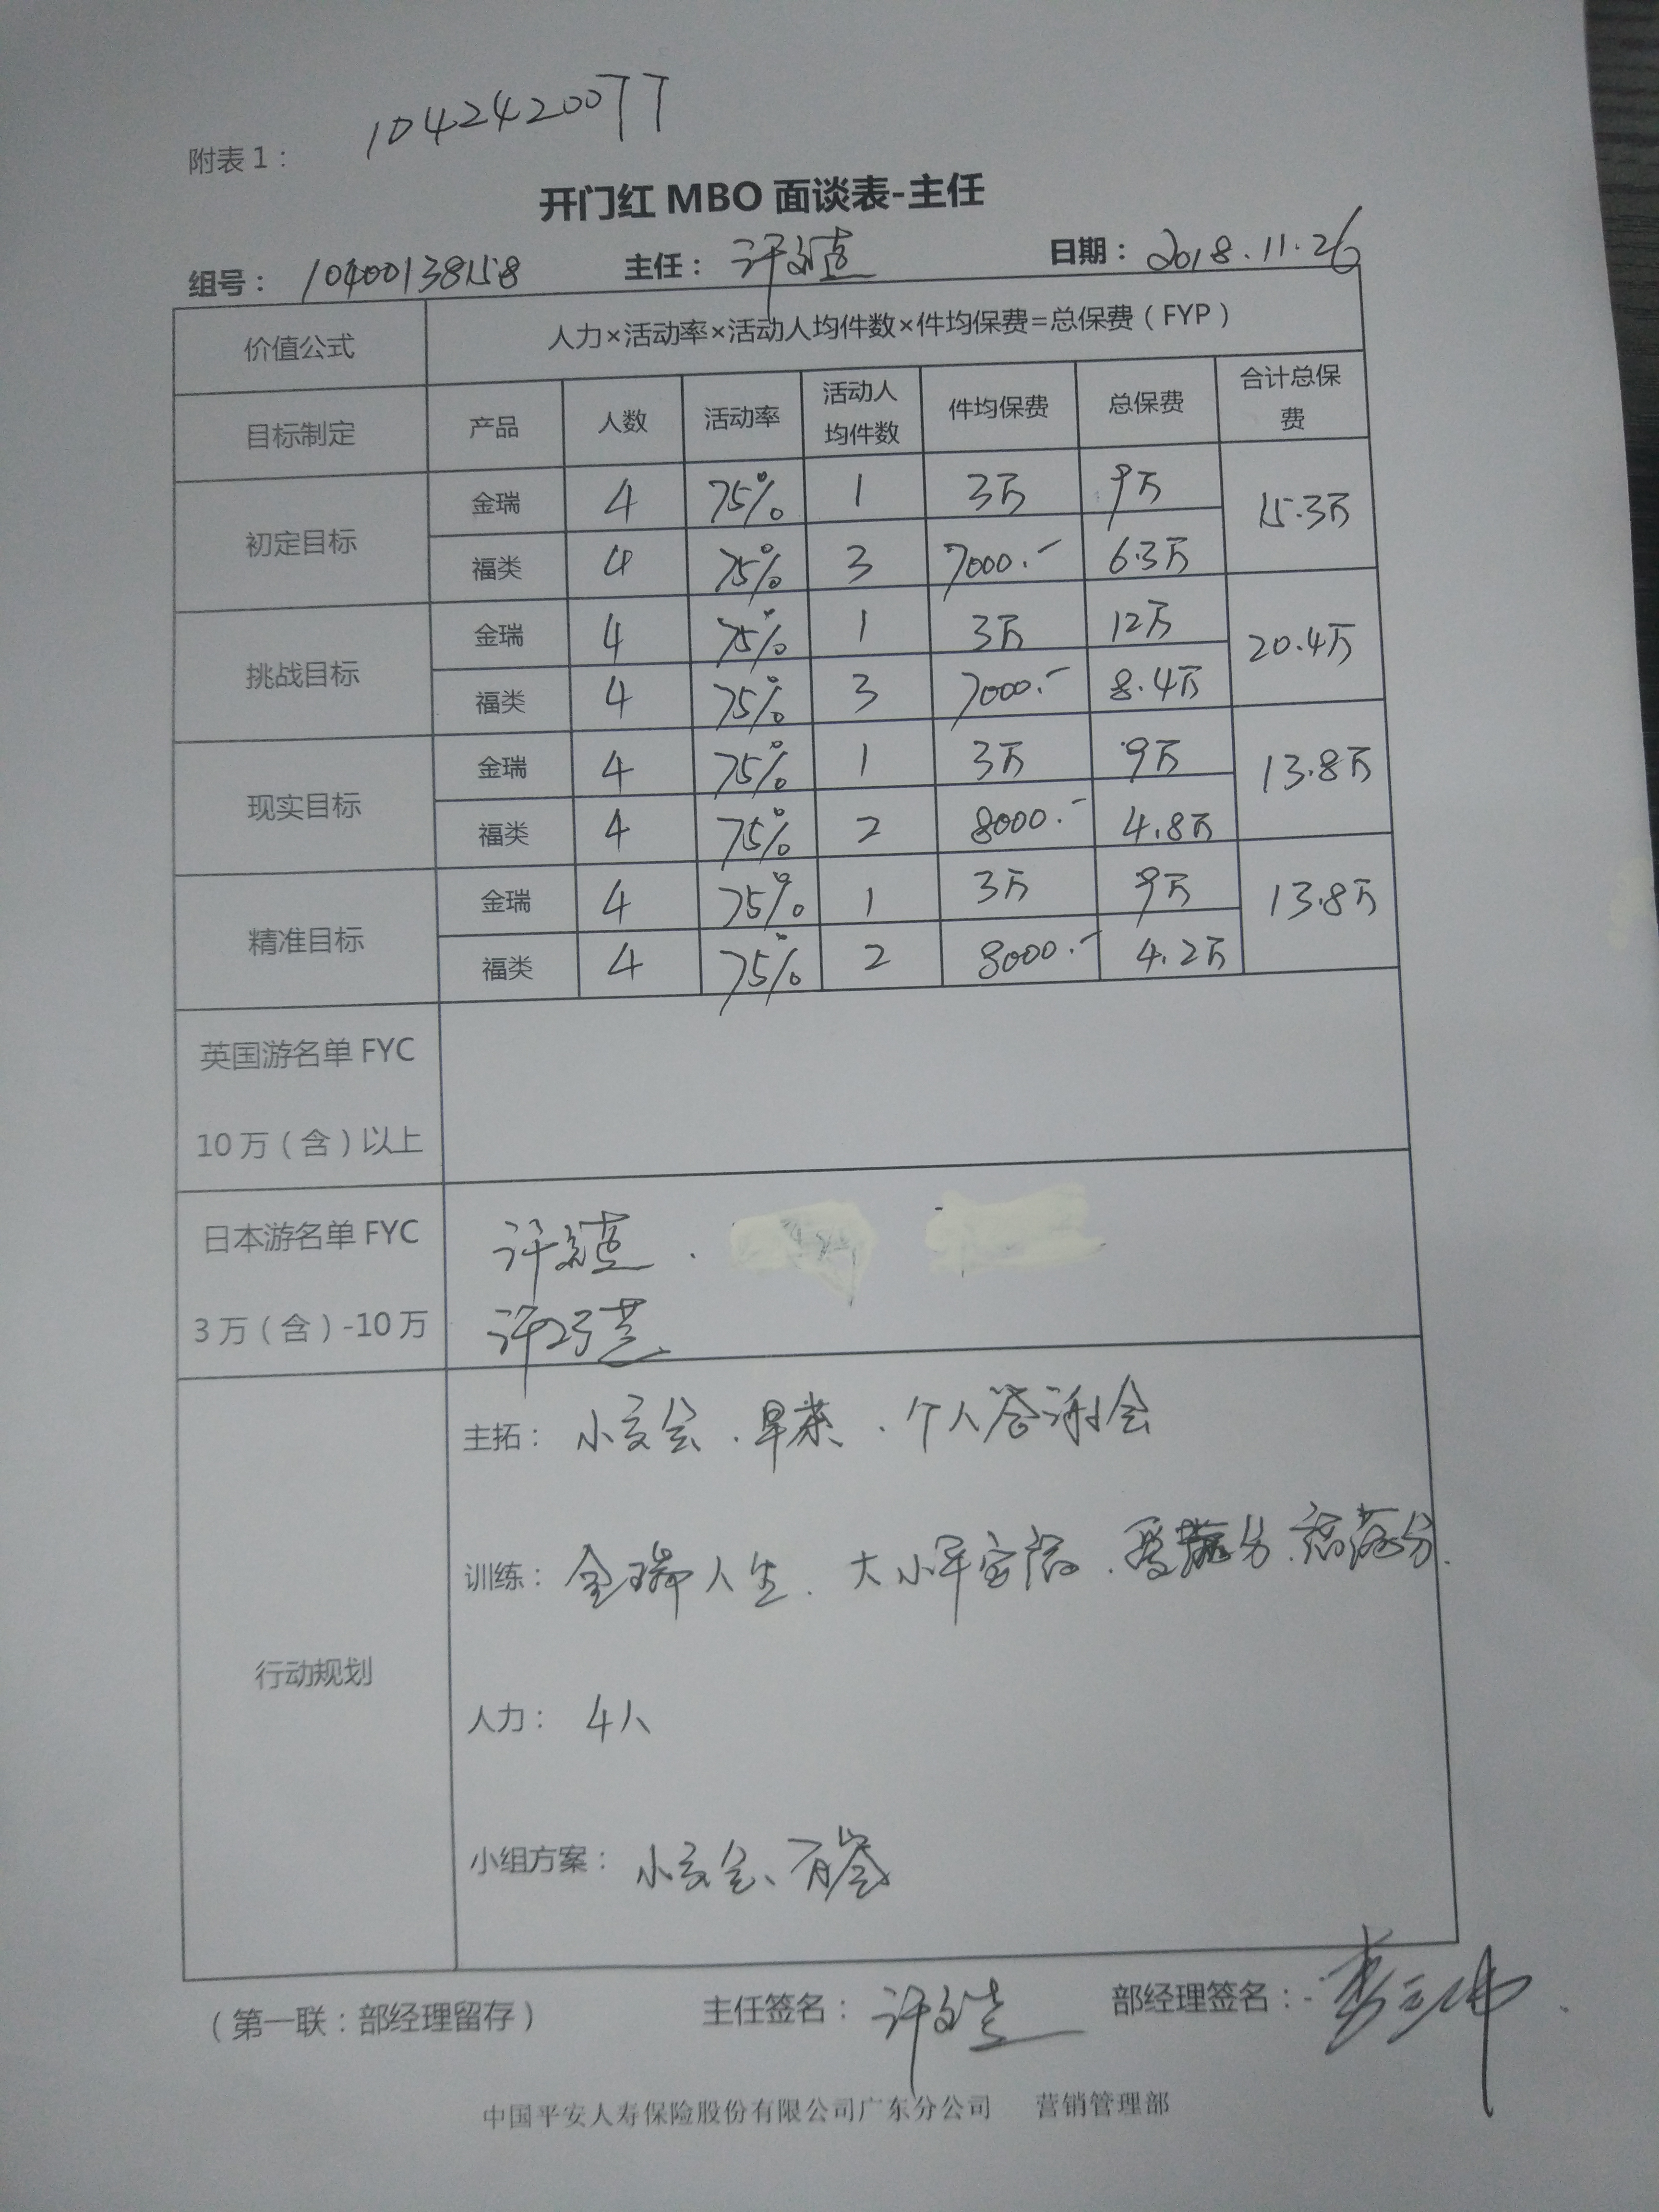 1042420077
附表1：
开门红MBO面谈表-主任
组号： 10400138158 主任： 许 日期： 2018.11.26
价值公式 人力×活动率×活动人均件数×件均保费=总保费（FYP）
目标制定 产品 人数 活动率 活动人均件数 件均保费 总保费 合计总保费
初定目标 金瑞 4 75% 1 3万 9万 15.3万
福类 4 75% 3 7000.- 6.3万
挑战目标 金瑞 4 75% 1 3万 12万 20.4万
福类 4 75% 3 7000.- 8.4万
现实目标 金瑞 4 75% 1 3万 9万 13.8万
福类 4 75% 2 8000.- 4.8万
精准目标 金瑞 4 75% 1 3万 9万 13.8万
福类 4 75% 2 8000.- 4.2万
英国游名单FYC
10万（含）以上
日本游名单FYC 许
3万（含）-10万 许
行动规划
主拓： 小交会、早菜、个人答谢会
训练： 金瑞人生、大小
人力： 4人
小组方案： 小交会、
（第一联：部经理留存） 主任签名： 许 部经理签名：
中国平安人寿保险股份有限公司广东分公司 营销管理部